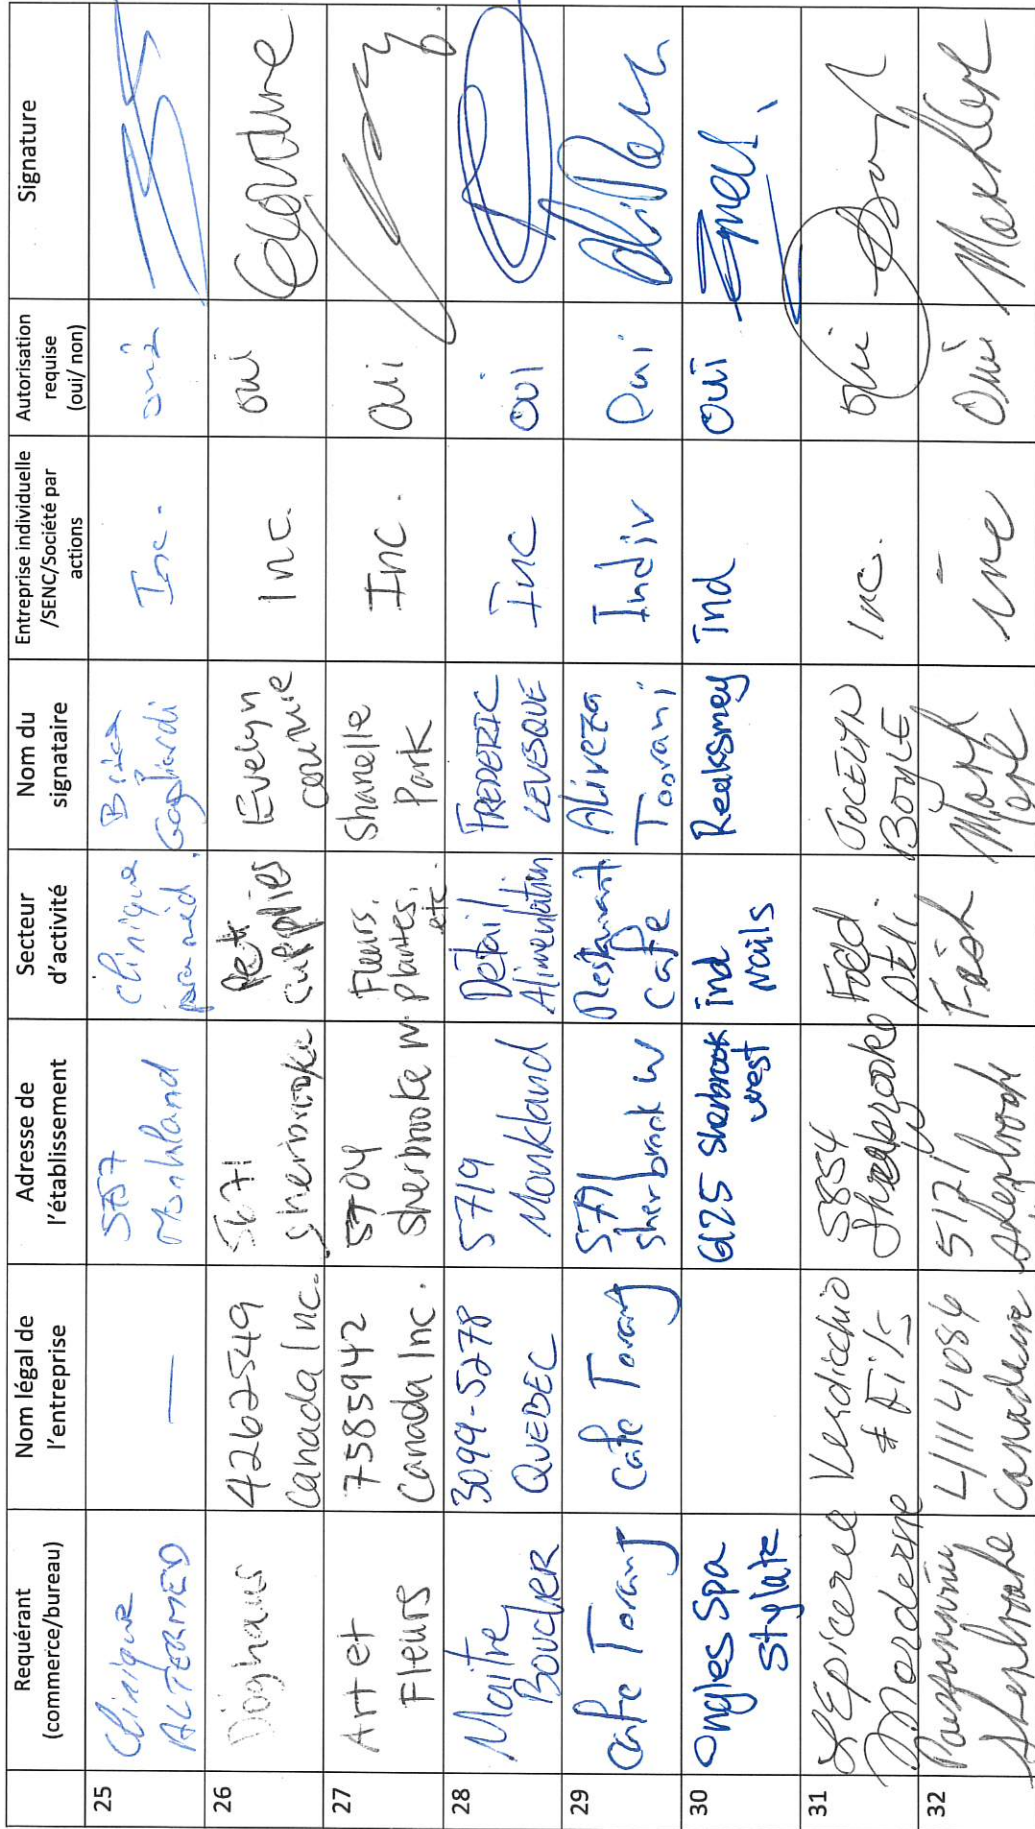 Requérant
(commerce/bureau)
Nom légal de
l'entreprise
Adresse de
l'établissement
Secteur
d'activité
Nom du
signataire
Entreprise individuelle
/SENC/Société par
actions
Autorisation
requise
(oui/ non)
Signature
25
Clinique
ALTERMED
—
5757
Monkland
Clinique
para méd.
Gagliardi
Inc.
oui
26
Doghaus
4262549
Canada Inc.
5671
Sherbrooke
Pet
cupplies
Evelyn
Inc.
oui
27
Art et
Fleurs
7585942
Canada Inc.
5704
Sherbrooke W.
Fleurs,
Plantes,
etc.
Shanelle
Park
Inc.
oui
28
Maitre
Boucher
3099-5278
QUEBEC
5719
Monkland
Détail
Alimentation
FREDERIC
LEVESQUE
Inc
oui
29
Cafe Torany
Cafe Torany
5771
sherbrook W
Restaurant
Cafe
Alireza
Toorani
Indiv
Oui
30
Ongles Spa
Stylate
6125 Sherbrook
west
ind
nails
Reaksmey
Ind
oui
31
L'Epicerie
Moderne
Verdicchio
& Fils
5854
Sherbrooke
Food
Deli
JOCELYN
BOYLE
Inc.
oui
32
Poissonnerie
Sherbrooke
4114086
Canadienne
5121
Sherbrooke
Fish
Mark
inc
Oui